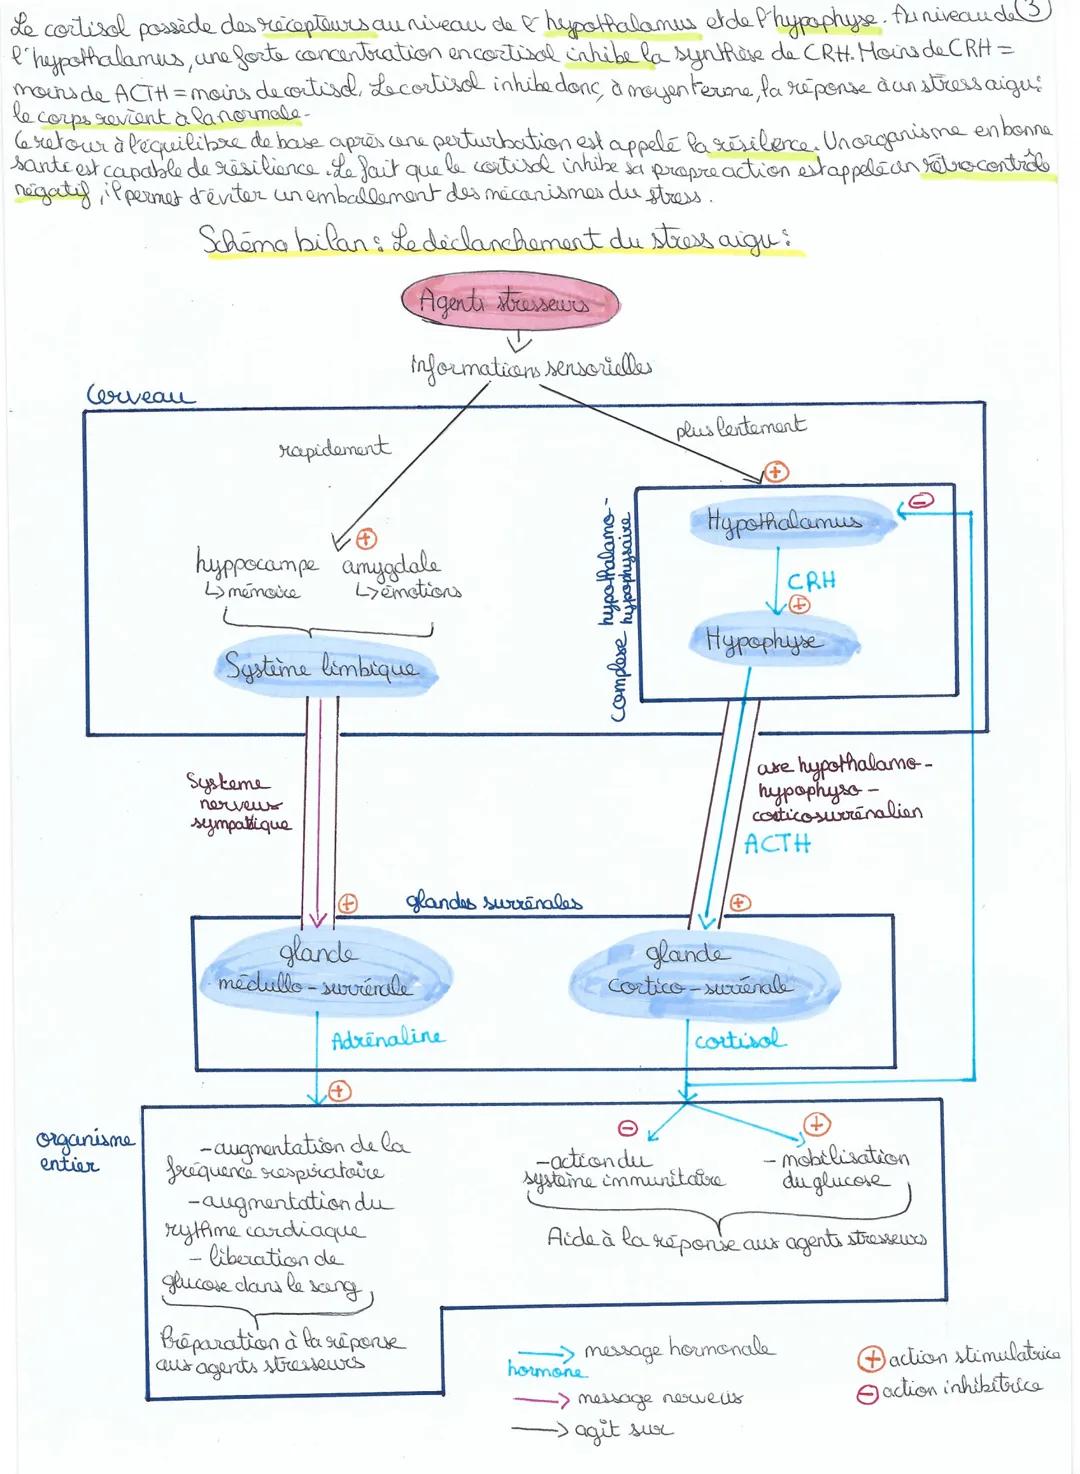 Le cortisol possède des récepteurs au niveau de l'hypothalamus et de l'hypophyse. Au niveau de 3
l'hypothalamus, une forte concentration en cortisol inhibe la synthèse de CRH. Moins de CRH =
moins de ACTH = moins de cortisol. Le cortisol inhibe donc, à moyen terme, la réponse à un stress aigu :
le corps revient à la normale.
Ce retour à l'équilibre de base après une perturbation est appelé la résilence. Un organisme en bonne
santé est capable de résilience. Le fait que le cortisol inhibe sa propre action est appelé un rétrocontrôle
négatif, il permet d'éviter un emballement des mécanismes du stress.
Schéma bilan : Le déclanchement du stress aigu :
Agents stresseurs
informations sensorielles
Cerveau
rapidement
plus lentement
+
complexe hypothalamo-
hypophysaire
Hypothalamus
-
CRH
+
Hypophyse
+
hyppocampe amygdale
↳ mémoire ↳ émotions
Système limbique
Systeme
nerveux
sympatique
axe hypothalamo-
hypophyso-
corticosurrénalien
ACTH
+
glandes surrénales
+
glande
médullo-surrénale
glande
cortico-surrénale
Adrénaline
cortisol
+
organisme
entier
-augmentation de la
fréquence respiratoire
-augmentation du
rythme cardiaque
- libération de
glucose dans le sang
Préparation à la réponse
aux agents stresseurs
-
-action du
système immunitaire
+
- mobilisation
du glucose
Aide à la réponse aux agents stresseurs
→ message hormonale
hormone
→ message nerveux
→ agit sur
+ action stimulatrice
- action inhibitrice